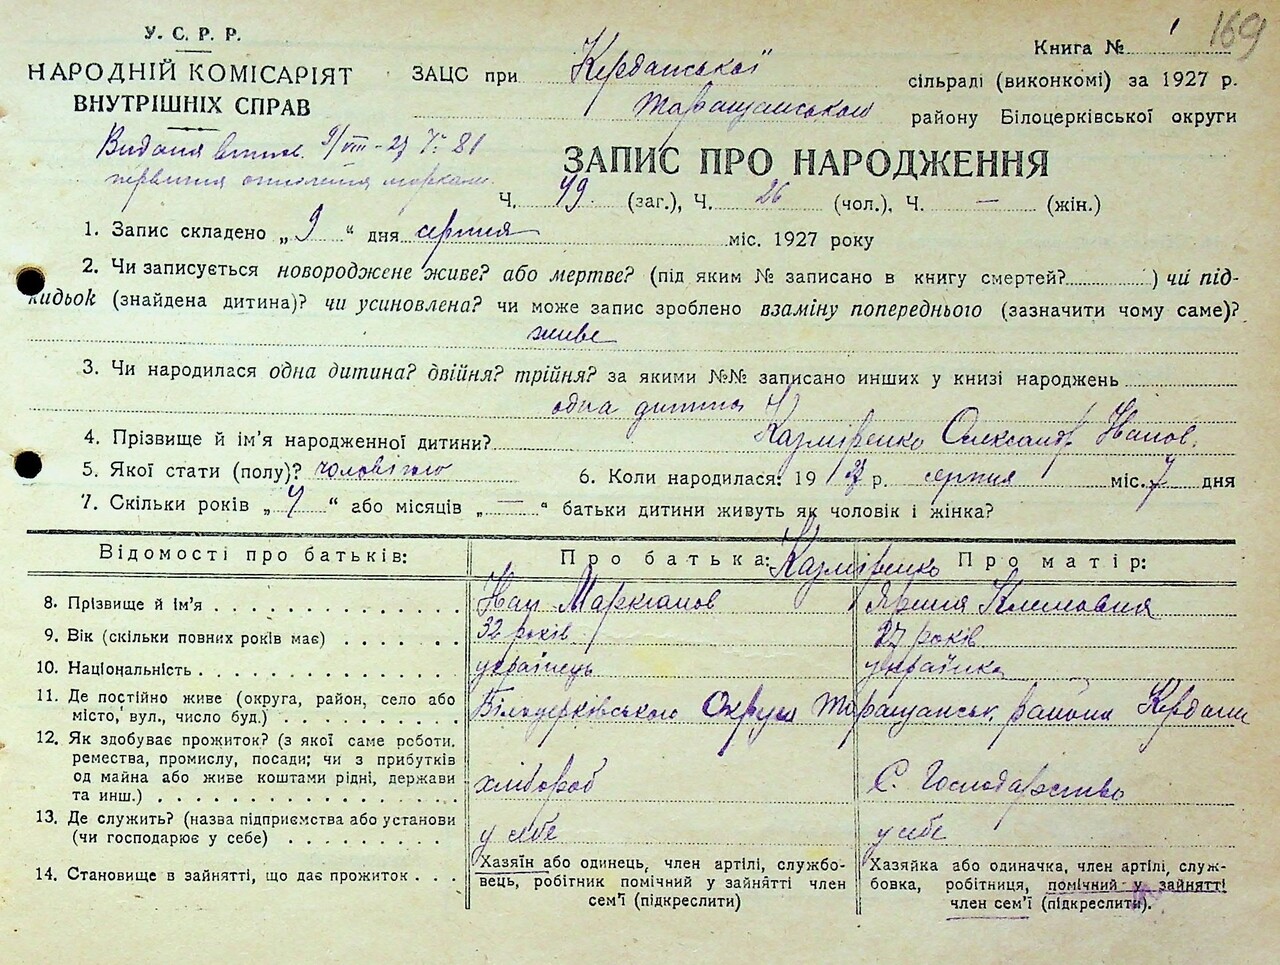 169
У. С. Р. Р.
НАРОДНІЙ КОМІСАРІЯТ
ВНУТРІШНІХ СПРАВ
Книга № 1
ЗАЦС при Керданської сільраді (виконкомі) за 1927 р.
Таращанського району Білоцерківської округи
9/VIII-27
ЗАПИС ПРО НАРОДЖЕННЯ
Ч. 49. (заг.), Ч. 26 (чол.), Ч. — (жін.)
1. Запис складено „ 9 “ дня серпня міс. 1927 року
2. Чи записується новороджене живе? або мертве? (під яким № записано в книгу смертей? ) чи під-
кидьок (знайдена дитина)? чи усиновлена? чи може запис зроблено взаміну попередньою (зазначити чому саме)?
живе
3. Чи народилася одна дитина? двійня? трійня? за якими №№ записано инших у книзі народжень
одна дитина
4. Прізвище й ім'я народженної дитини? Казміренко Олександр Іванов.
5. Якої стати (полу)? чоловічого 6. Коли народилася: 19 27 р. серпня міс. 7 дня
7. Скільки років „ 4 “ або місяців „ — “ батьки дитини живуть як чоловік і жінка?
Відомості про батьків: Про батька: Казміренко Про матір:
8. Прізвище й ім'я Іван Маркіанов Ярина Климовна
9. Вік (скільки повних років має) 32 років 27 років
10. Національність українець українка
11. Де постійно живе (округа, район, село або
місто, вул., число буд.) Білоцерківського Округи Таращанськ. района Кердани
12. Як здобуває прожиток? (з якої саме роботи,
ремества, промислу, посади; чи з прибутків
од майна або живе коштами рідні, держави
та инш.) хлібороб С. Господарство
13. Де служить? (назва підприємства або установи
(чи господарює у себе) у себе у себе
14. Становище в зайнятті, що дає прожиток
Хазяїн або одинець, член артілі, службо-
вець, робітник помічний у зайнятті член
сем'ї (підкреслити)
Хазяйка або одиначка, член артілі, служ-
бовка, робітниця, помічний у зайнятті
член сем'ї (підкреслити).